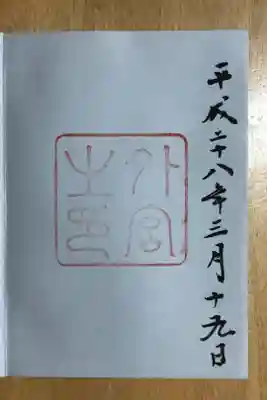 平成二十八年三月十九日
外宮
之印